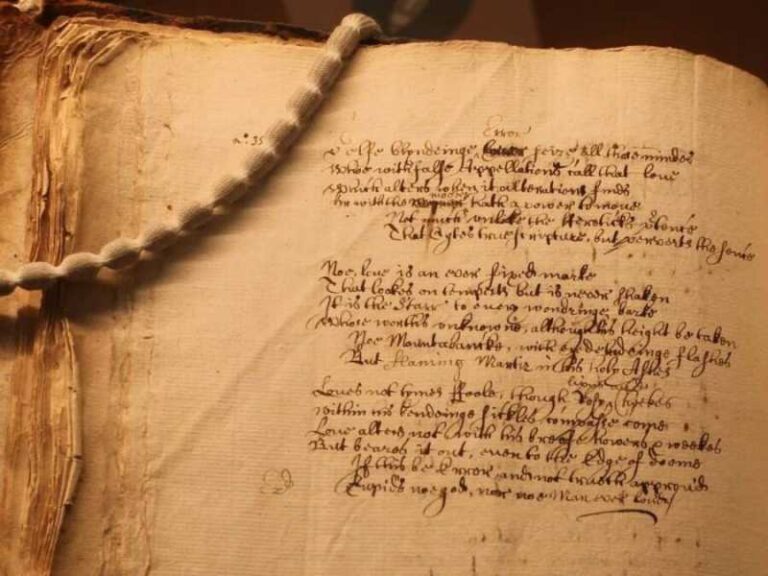 Error
n°. 35
selfe blyndeinge seize all those mindes
Who with false Appellations call that love
Which alters when it alterations finds
mover
or with the hath a power to move
Not much unlike the Hereticks p'tence
That Cytes true scripture, but perverts the sence
Noe, love is an ever fixed marke
That lookes on tempests but is never shaken
It is the Starr to every wandringe barke
Whose worth's unknowne, although his height be taken
Noe Mountebanke, with eye-deludeinge flashes
But flameing Martir in his holy Ashes
lipps and
Loves not tymes Foole, though Rosye Cheekes
within his bendeinge sickles compasse come
Love alters not with his breife howers & weekes
But beares it out, even to the Edge of doome
If this be Error and not truth approv'd
Cupids noe god, nor noe Man ever lov'd